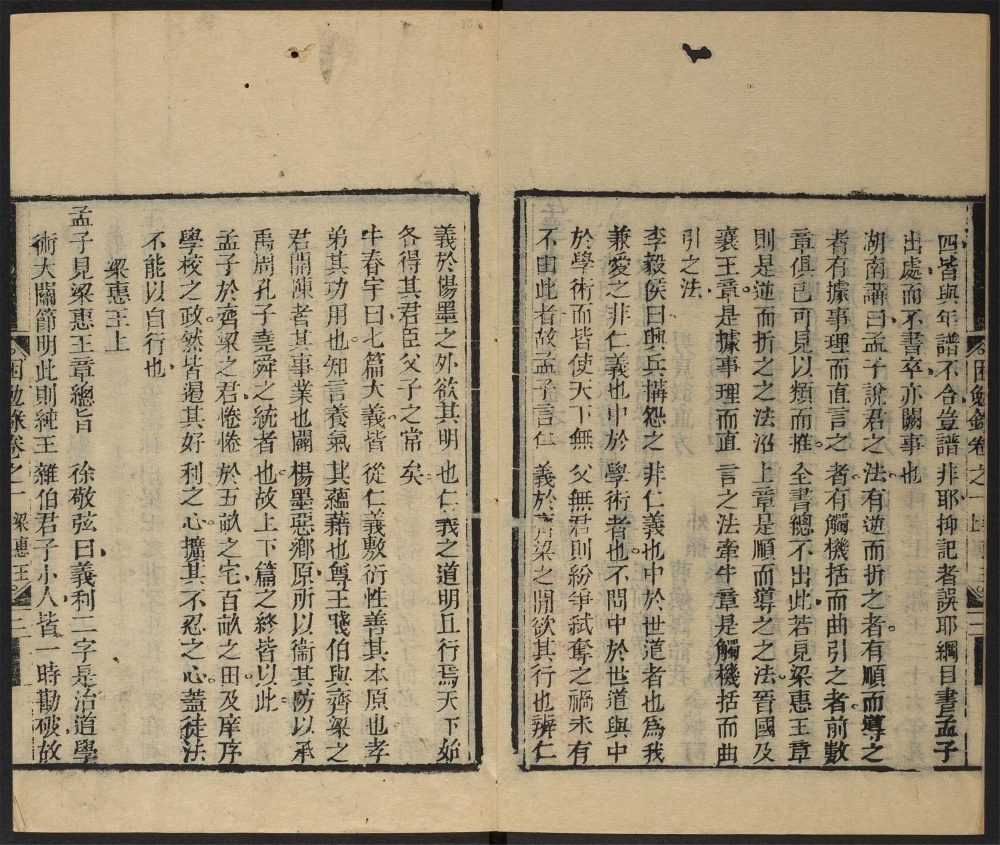 四皆與年譜不合豈譜非耶抑記者誤耶綱目書孟子
出處而不書卒亦闕事也
湖南講曰孟子說君之法有逆而折之者有順而導之
者有據事理而直言之者有觸機括而曲引之者前數
章俱已可見以類而推全書總不出此若見梁惠王章
則是逆而折之之法沼上章是順而導之之法晉國及
襄王章是據事理而直言之法牽牛章是觸機括而曲
引之法
李毅侯曰興兵搆怨之非仁義也中於世道者也爲我
兼愛之非仁義也中於學術者也不問中於世道與中
於學術而皆使天下無父無君則紛爭弑奪之禍未有
不由此者故孟子言仁義於齊梁之間欲其行也辨仁
義於楊墨之外欲其明也仁義之道明且行焉天下始
各得其君臣父子之常矣
牛春宇曰七篇大義皆從仁義敷衍性善其本原也孝
弟其功用也知言養氣其蘊藉也尊王賤伯與齊梁之
君開陳者其事業也闢楊墨惡鄉原所以衛其防以承
禹周孔子堯舜之統者也故上下篇之終皆以此
孟子於齊梁之君惓惓於五畝之宅百畝之田及庠序
學校之政然皆遏其好利之心擴其不忍之心蓋徒法
不能以自行也
梁惠王上
孟子見梁惠王章總旨 徐敬弦曰義利二字是治道學
術大關節明此則純王雜伯君子小人皆一時勘破故
困勉錄卷之一 梁惠王 二